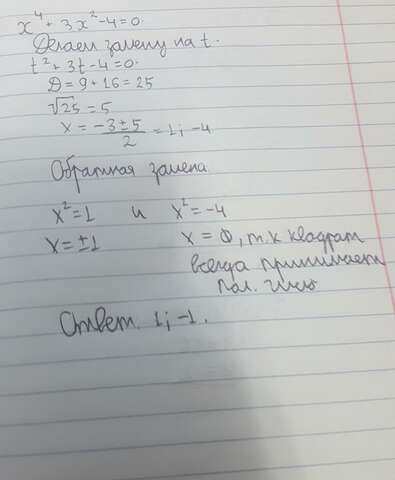 x⁴ + 3x² - 4 = 0.
Делаем замену на t.
t² + 3t - 4 = 0.
D = 9 + 16 = 25
√25 = 5
x = (-3 ± 5)/2 = 1; -4
Обратная замена
x² = 1 и x² = -4
x = ±1 x = Ø, т.к квадрат
всегда принимает
пол. числ
Ответ. 1; -1.